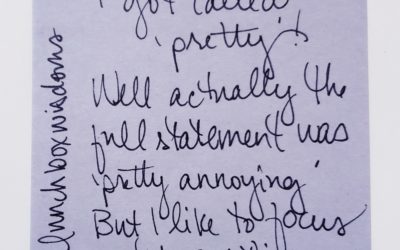 I got called
'pretty'!
Well actually the
full statement was
'pretty annoying'
But I like to focus
lunchbox wisdoms